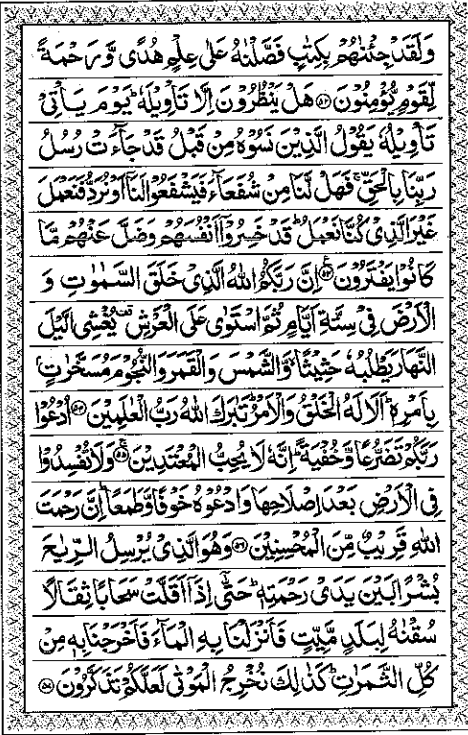 وَلَقَدْ جِئْنٰهُمْ بِكِتٰبٍ فَصَّلْنٰهُ عَلٰى عِلْمٍ هُدًى وَّ رَحْمَةً
لِّقَوْمٍ يُّؤْمِنُوْنَ ۝۵۲ هَلْ يَنْظُرُوْنَ اِلَّا تَاْوِيْلَهٗ ؕ يَوْمَ يَاْتِيْ
تَاْوِيْلُهٗ يَقُوْلُ الَّذِيْنَ نَسُوْهُ مِنْ قَبْلُ قَدْ جَآءَتْ رُسُلُ
رَبِّنَا بِالْحَقِّ ۚ فَهَلْ لَّنَا مِنْ شُفَعَآءَ فَيَشْفَعُوْا لَنَآ اَوْ نُرَدُّ فَنَعْمَلَ
غَيْرَ الَّذِيْ كُنَّا نَعْمَلُ ؕ قَدْ خَسِرُوْۤا اَنْفُسَهُمْ وَضَلَّ عَنْهُمْ مَّا
كَانُوْا يَفْتَرُوْنَ ۝۵۳ اِنَّ رَبَّكُمُ اللّٰهُ الَّذِيْ خَلَقَ السَّمٰوٰتِ وَ
الْاَرْضَ فِيْ سِتَّةِ اَيَّامٍ ثُمَّ اسْتَوٰى عَلَى الْعَرْشِ ۫ يُغْشِى الَّيْلَ
النَّهَارَ يَطْلُبُهٗ حَثِيْثًا ۙ وَّالشَّمْسَ وَالْقَمَرَ وَالنُّجُوْمَ مُسَخَّرٰتٍۭ
بِاَمْرِهٖ ؕ اَلَا لَهُ الْخَلْقُ وَالْاَمْرُ ؕ تَبٰرَكَ اللّٰهُ رَبُّ الْعٰلَمِيْنَ ۝۵۴ اُدْعُوْا
رَبَّكُمْ تَضَرُّعًا وَّخُفْيَةً ؕ اِنَّهٗ لَا يُحِبُّ الْمُعْتَدِيْنَ ۝۵۵ وَلَا تُفْسِدُوْا
فِى الْاَرْضِ بَعْدَ اِصْلَاحِهَا وَادْعُوْهُ خَوْفًا وَّطَمَعًا ؕ اِنَّ رَحْمَتَ
اللّٰهِ قَرِيْبٌ مِّنَ الْمُحْسِنِيْنَ ۝۵۶ وَهُوَ الَّذِيْ يُرْسِلُ الرِّيٰحَ
بُشْرًۢا بَيْنَ يَدَيْ رَحْمَتِهٖ ؕ حَتّٰۤى اِذَاۤ اَقَلَّتْ سَحَابًا ثِقَالًا
سُقْنٰهُ لِبَلَدٍ مَّيِّتٍ فَاَنْزَلْنَا بِهِ الْمَآءَ فَاَخْرَجْنَا بِهٖ مِنْ
كُلِّ الثَّمَرٰتِ ؕ كَذٰلِكَ نُخْرِجُ الْمَوْتٰى لَعَلَّكُمْ تَذَكَّرُوْنَ ۝۵۷